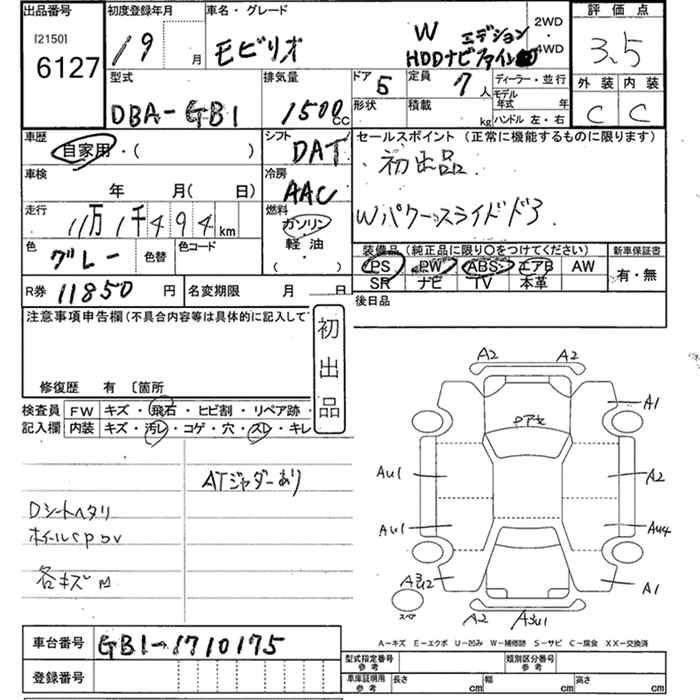 出品番号 初度登録年月 車名・グレード 評価点
[2150]
6127
19 月 モビリオ W エディション 2WD・4WD
HDDナビ
3.5
型式 排気量 ドア 定員 ディーラー・並行 外装 内装
DBA-GB1 1500cc 5 7人 モデル年式 年
形状 積載 kg ハンドル 左・右
C C
車歴 シフト セールスポイント (正常に機能するものに限ります)
自家用・( ) DAT
初出品
車検 冷房
年 月( 日) AAC
Wパワースライドドア
走行 燃料
11万1千494km ガソリン
軽油
( )
色 色替 色コード
グレー
装備品 (純正品に限り○をつけてください) 新車保証書
PS PW ABS エアB AW 有・無
SR ナビ TV 本革
R券 11850円 名変期限 月 日 後日品
注意事項申告欄(不具合内容等は具体的に記入して
初出品
修復歴 有 〔箇所
検査員 FW キズ・飛石・ヒビ割・リペア跡・
記入欄 内装 キズ・汚レ・コゲ・穴・スレ・キレ
ATジャダーあり
Dシートヘタリ
各キズ
A2 A2
A1
Au1 A2
Au1 Au4
A1
スペア
A2
A-キズ E-エクボ U-凹み W-補修跡 S-サビ C-腐食 XX-交換済
車台番号 GB1-1710175
登録番号
型式指定番号 参考 類別区分番号 参考
車庫証明用 参考 長さ cm 幅 cm 高さ cm